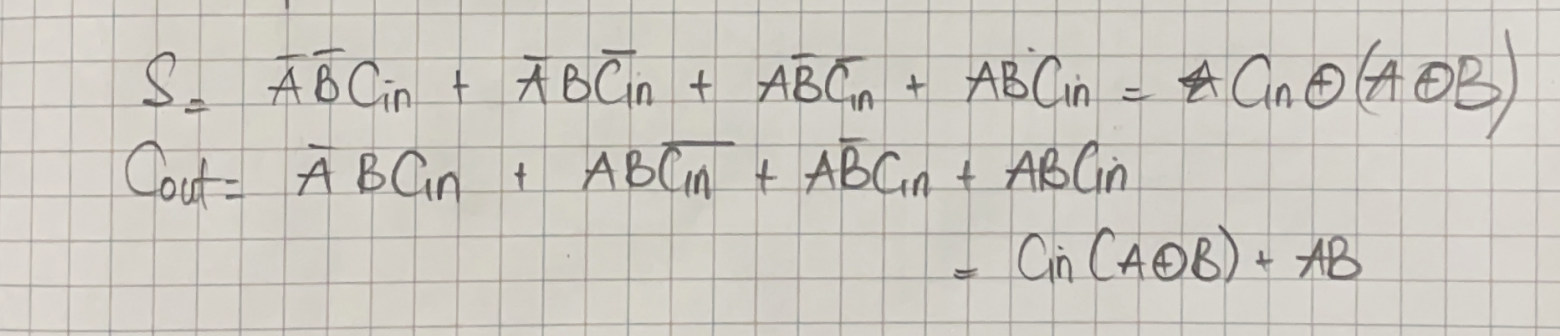 S = A̅ B̅ Cin + A̅ B C̅i̅n̅ + A B̅ C̅i̅n̅ + A B Cin = Cin ⊕ (A ⊕ B)
Cout = A̅ B Cin + A B C̅i̅n̅ + A B̅ Cin + A B Cin
= Cin (A ⊕ B) + AB